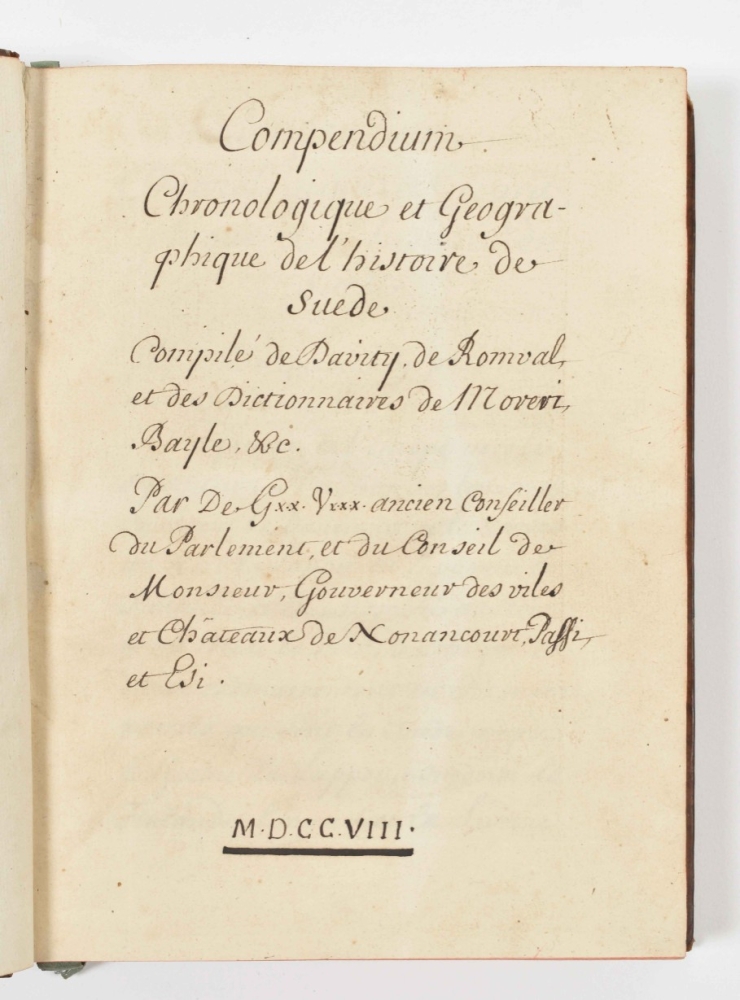 Compendium
Chronologique et Geogra-
phique de l'histoire de
Suede
Compilé de Davity, de Romval,
et des Dictionnaires de Moreri,
Bayle, &c.
Par De Gxx. Vxxx. ancien Conseiller
du Parlement, et du Conseil de
Monsieur, Gouverneur des viles
et Châteaux de Nonancourt, Passi,
et Esi.
M.D.CC.VIII.